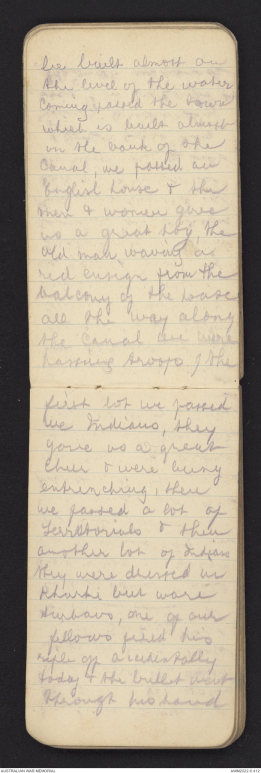 be built almost on
the level of the water
coming passed the town
which is built almost
on the bank of the
Canal, we passed an
English house & the
men & women gave
us a great hoy the
old man waving a
red ensign from the
balcony of the house
all the way along
the Canal we were
passing troops, the
first lot we passed
we Indians, they
gave us a great
cheer & were busy
entrenching, then
we passed a lot of
Territorials & then
another lot of Indians
they were dressed in
Kharki but wore
turbans, one of our
fellows fired his
rifle off accidentally
today & the bullet went
through his hand
AUSTRALIAN WAR MEMORIAL